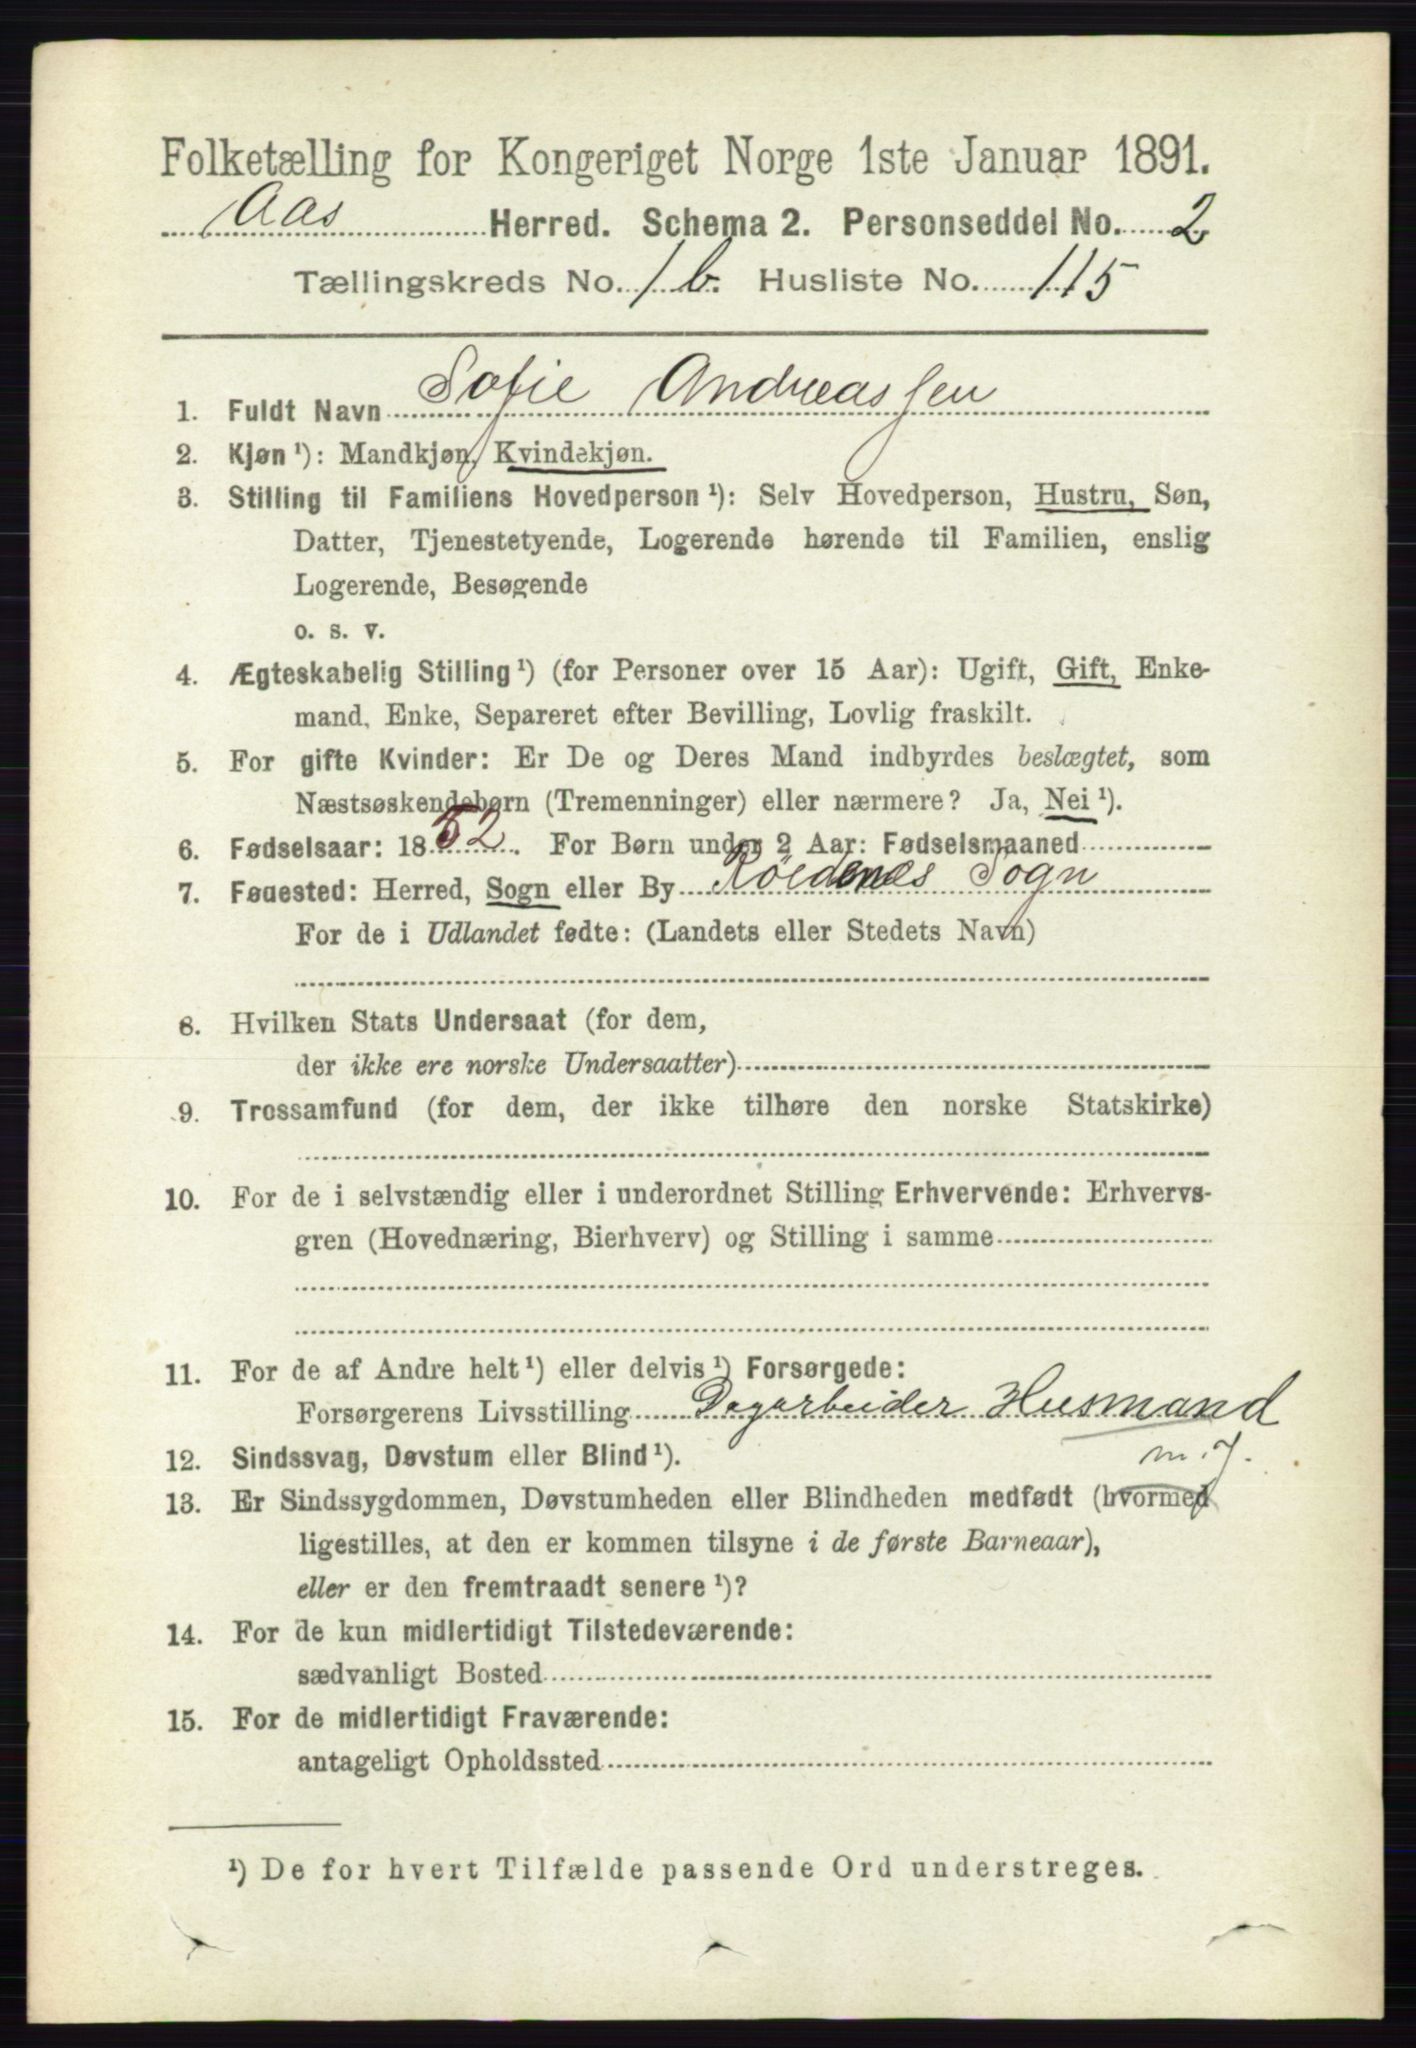 Folketælling for Kongeriget Norge 1ste Januar 1891.
Aas Herred. Schema 2. Personseddel No. 2
Tællingskreds No. 1 b. Husliste No. 115
1. Fuldt Navn Sofie Andreassen
2. Kjøn ¹): Mandkjøn, Kvindekjøn.
3. Stilling til Familiens Hovedperson ¹): Selv Hovedperson, Hustru, Søn,
Datter, Tjenestetyende, Logerende hørende til Familien, enslig
Logerende, Besøgende
o. s. v.
4. Ægteskabelig Stilling ¹) (for Personer over 15 Aar): Ugift, Gift, Enke-
mand, Enke, Separeret efter Bevilling, Lovlig fraskilt.
5. For gifte Kvinder: Er De og Deres Mand indbyrdes beslægtet, som
Næstsøskendebørn (Tremenninger) eller nærmere? Ja, Nei ¹).
6. Fødselsaar: 1852. For Børn under 2 Aar: Fødselsmaaned
7. Fødested: Herred, Sogn eller By Rödenes Sogn
For de i Udlandet fødte: (Landets eller Stedets Navn)
8. Hvilken Stats Undersaat (for dem,
der ikke ere norske Undersaatter)
9. Trossamfund (for dem, der ikke tilhøre den norske Statskirke)
10. For de i selvstændig eller i underordnet Stilling Erhvervende: Erhvervs-
gren (Hovednæring, Bierhverv) og Stilling i samme
11. For de af Andre helt ¹) eller delvis ¹) Forsørgede:
Forsørgerens Livsstilling Dagarbeider Husmand
m. J.
12. Sindssvag, Døvstum eller Blind ¹).
13. Er Sindssygdommen, Døvstumheden eller Blindheden medfødt (hvormed
ligestilles, at den er kommen tilsyne i de første Barneaar),
eller er den fremtraadt senere ¹)?
14. For de kun midlertidigt Tilstedeværende:
sædvanligt Bosted
15. For de midlertidigt Fraværende:
antageligt Opholdssted
¹) De for hvert Tilfælde passende Ord understreges.